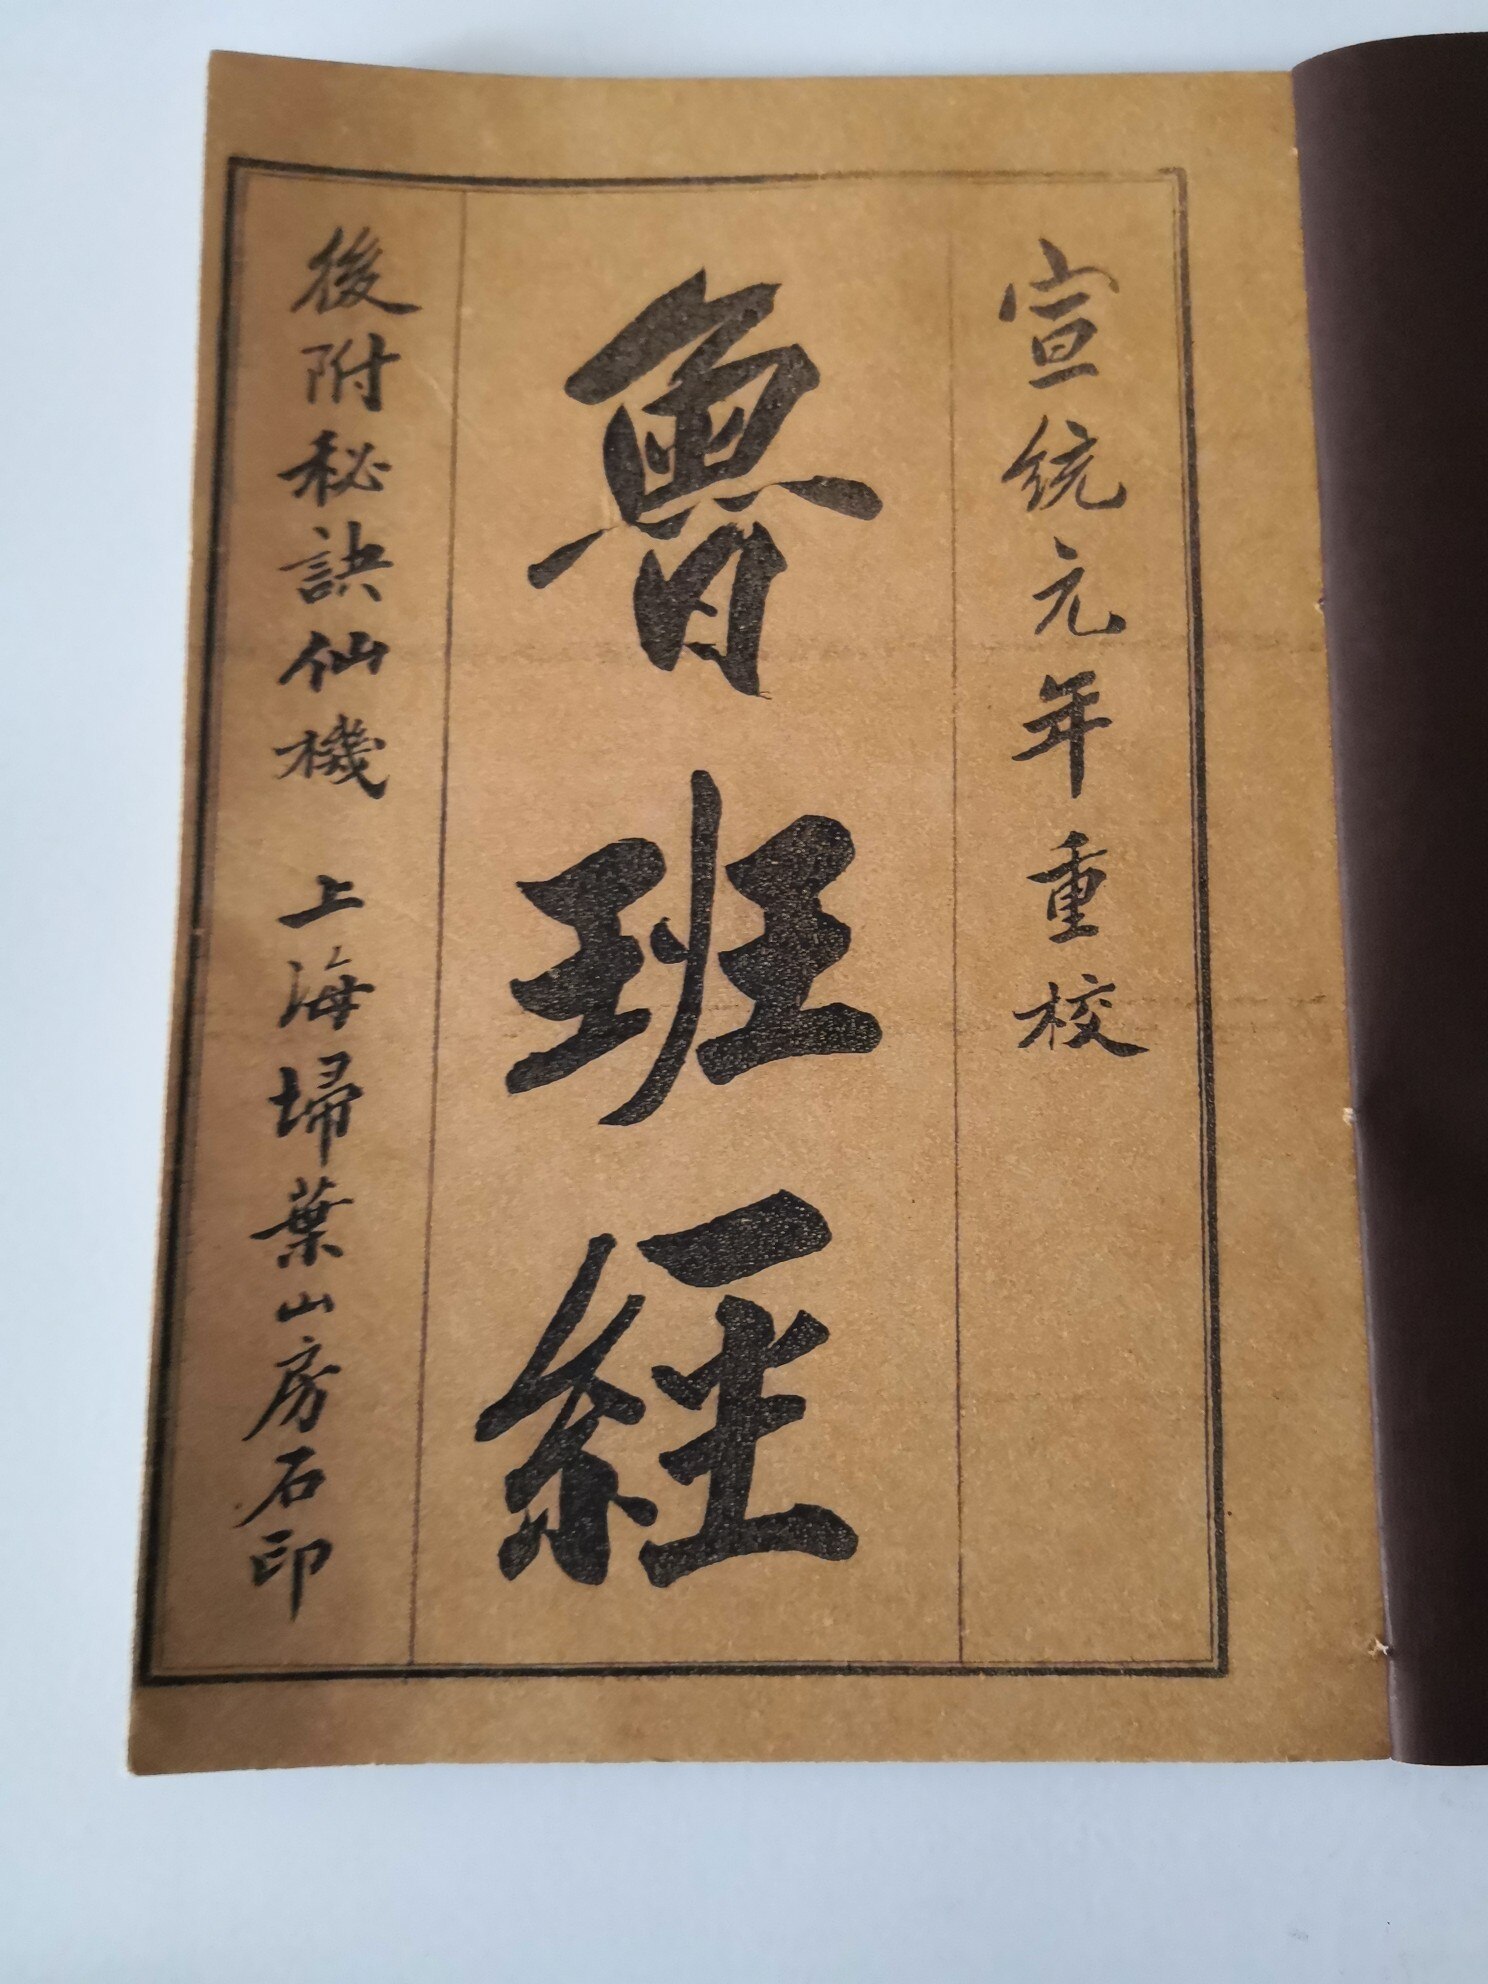 宣統元年重校
魯班經
後附秘訣仙機 上海埽葉山房石印